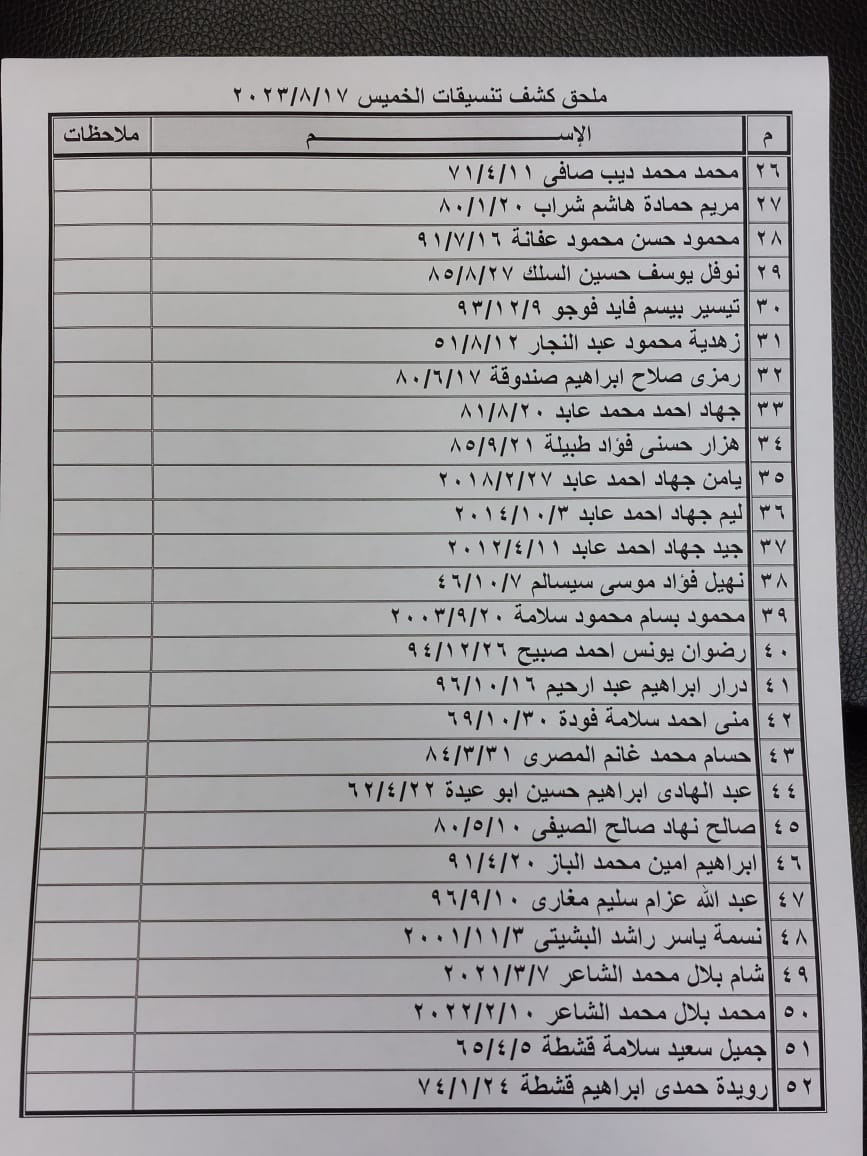 ملحق كشف تنسيقات الخميس ٢٠٢٣/٨/١٧
م الإســـــــــــم ملاحظات
٢٦ محمد محمد ديب صافى ٧١/٤/١١
٢٧ مريم حمادة هاشم شراب ٨٠/١/٢٠
٢٨ محمود حسن محمود عفانة ٩١/٧/١٦
٢٩ نوفل يوسف حسين السلك ٨٥/٨/٢٧
٣٠ تيسير بيسم فايد فوجو ٩٣/١٢/٩
٣١ زهدية محمود عبد النجار ٥١/٨/١٢
٣٢ رمزى صلاح ابراهيم صندوقة ٨٠/٦/١٧
٣٣ جهاد احمد محمد عابد ٨١/٨/٢٠
٣٤ هزار حسنى فؤاد طبيلة ٨٥/٩/٢١
٣٥ يامن جهاد احمد عابد ٢٠١٨/٢/٢٧
٣٦ ليم جهاد احمد عابد ٢٠١٤/١٠/٣
٣٧ جيد جهاد احمد عابد ٢٠١٢/٤/١١
٣٨ نهيل فؤاد موسى سيسالم ٤٦/١٠/٧
٣٩ محمود بسام محمود سلامة ٢٠٠٣/٩/٢٠
٤٠ رضوان يونس احمد صبيح ٩٤/١٢/٢٦
٤١ درار ابراهيم عبد ارحيم ٩٦/١٠/١٦
٤٢ منى احمد سلامة فودة ٦٩/١٠/٣٠
٤٣ حسام محمد غانم المصرى ٨٤/٣/٣١
٤٤ عبد الهادى ابراهيم حسين ابو عيدة ٦٢/٤/٢٢
٤٥ صالح نهاد صالح الصيفى ٨٠/٥/١٠
٤٦ ابراهيم امين محمد الباز ٩١/٤/٢٠
٤٧ عبد الله عزام سليم مغارى ٩٦/٩/١٠
٤٨ نسمة ياسر راشد البشيتى ٢٠٠١/١١/٣
٤٩ شام بلال محمد الشاعر ٢٠٢١/٣/٧
٥٠ محمد بلال محمد الشاعر ٢٠٢٢/٢/١٠
٥١ جميل سعيد سلامة قشطة ٦٥/٤/٥
٥٢ رويدة حمدى ابراهيم قشطة ٧٤/١/٢٤